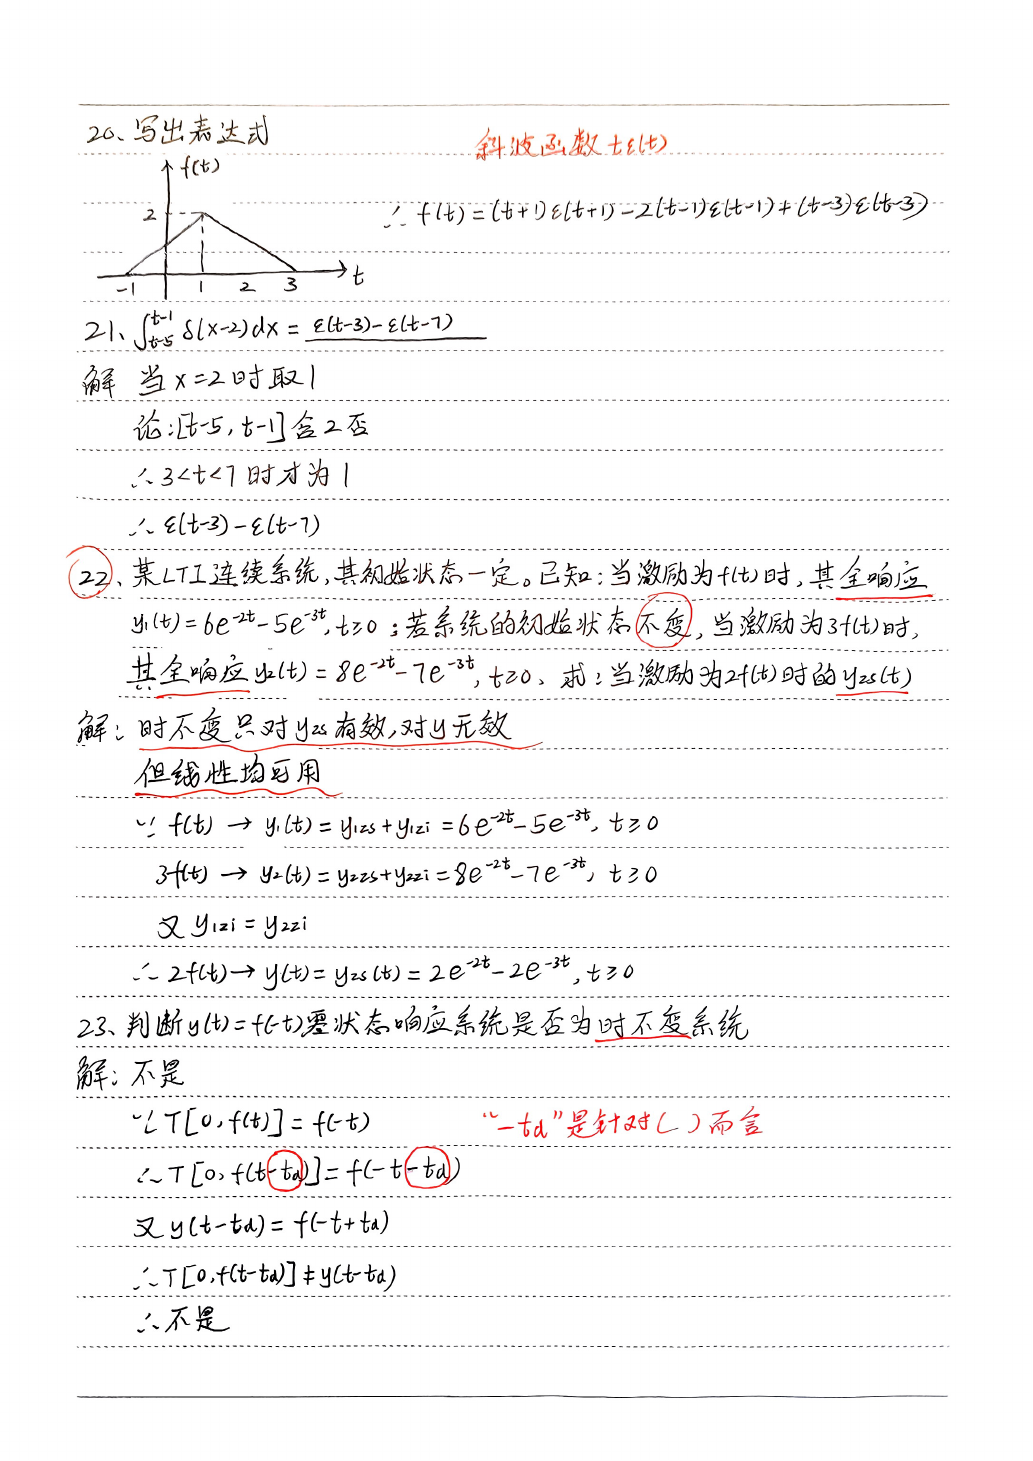 20、写出表达式
斜波函数 tε(t)
f(t)
2
∴ f(t)=(t+1)ε(t+1)-2(t-1)ε(t-1)+(t-3)ε(t-3)
-1 1 2 3 t
21、∫_{t-5}^{t-1} δ(x-2)dx = ε(t-3)-ε(t-7)
解 当x=2时取1
论:[t-5, t-1]含2否
∴ 3<t<7时才为1
∴ ε(t-3)-ε(t-7)
22、某LTI连续系统,其初始状态一定。已知:当激励为f(t)时,其全响应
y₁(t)=6e^{-2t}-5e^{-3t}, t≥0;若系统的初始状态不变,当激励为3f(t)时,
其全响应y₂(t)=8e^{-2t}-7e^{-3t}, t≥0、求:当激励为2f(t)时的yzs(t)
解:时不变只对yzs有效,对y无效
但线性均可用
∵ f(t) → y₁(t)=y1zs+y1zi=6e^{-2t}-5e^{-3t}, t≥0
3f(t) → y₂(t)=y2zs+y2zi=8e^{-2t}-7e^{-3t}, t≥0
又 y1zi=y2zi
∴ 2f(t)→ y(t)=yzs(t)=2e^{-2t}-2e^{-3t}, t≥0
23、判断y(t)=f(-t)零状态响应系统是否为时不变系统
解:不是
∵ T[0,f(t)]=f(-t)
"-td"是针对( )而言
∴ T[0,f(t-td)]=f(-t-td)
又 y(t-td)=f(-t+td)
∴ T[0,f(t-td)]≠y(t-td)
∴ 不是